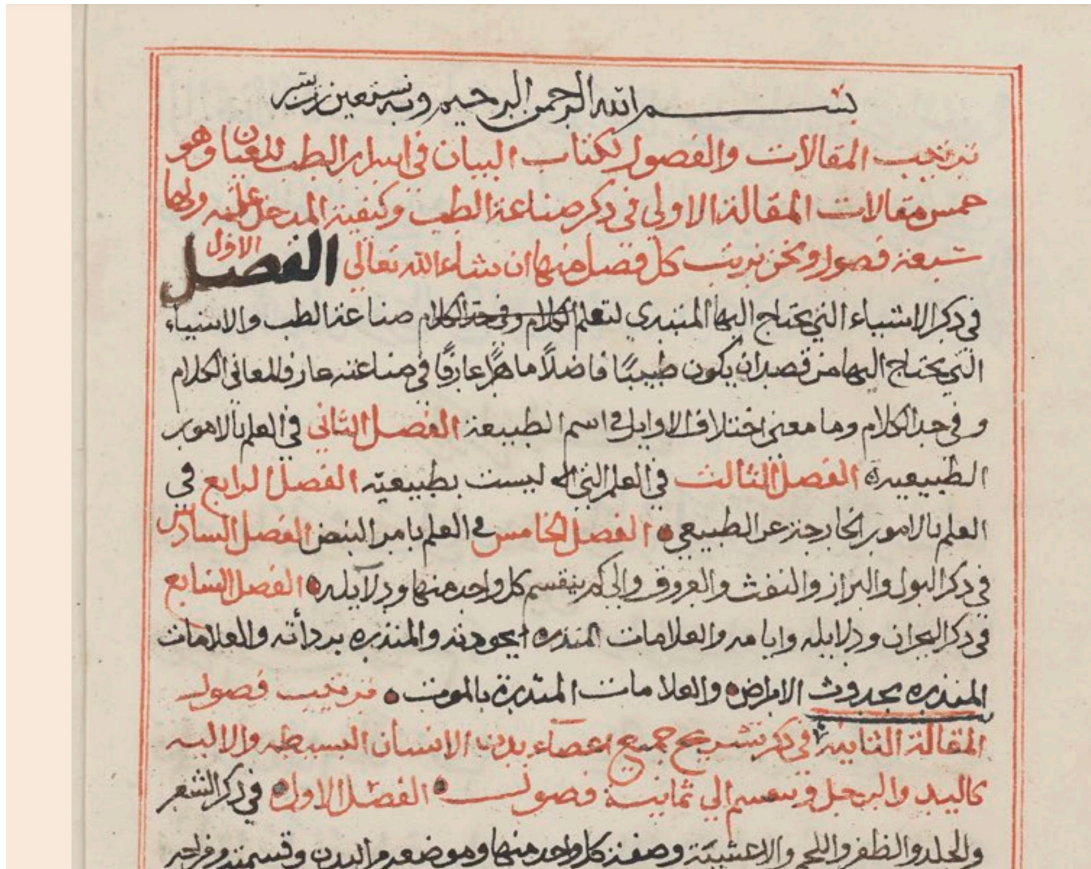 بسم الله الرحمن الرحيم وبه نستعين رب يسر
ترتيب المقالات والفصول لكتاب البيان في اسرار الطب للعيان وهو
خمس مقالات المقالة الاولى في ذكر صناعة الطب وكيفية المدخل الى علمه ولها
سبعة فصول ونحن نرتب كل فصل منها ان شاء الله تعالى الفصل الاول
في ذكر الاشياء التي يحتاج اليها المبتدي لتعلم الكلام وفي حد الكلام صناعة الطب والاشياء
التي يحتاج اليها من قصد ان يكون طبيبًا فاضلًا ماهرًا عارفًا في صناعته عارفا لمعاني الكلام
و في حد الكلام وما معنى اختلاف الاوايل في اسم الطبيعة الفصل الثاني في العلم بالامور
الطبيعية الفصل الثالث في العلم التي ليست بطبيعيّه الفصل الرابع في
العلم بالامور الخارجة عن الطبيعي الفصل الخامس في العلم بامر النبض الفصل السادس
في ذكر البول والبراز والنفث والعروق والى كم ينقسم كل واحد منها ودلايله الفصل السابع
في ذكر البحران ودلايله وايامه والعلامات المنذره بجودته والمنذره بردأته والعلامات
المنذره بحدوث الامراض والعلامات المنذرة بالموت ترتيب فصول
المقالة الثانية في ذكر تشريح جميع اعضاء بدن الانسان البسيطه والاليه
كاليد والرجل وينقسم الي ثمانية فصول الفصل الاول في ذكر الشعر
والجلد والظفر واللحم والاغشيّة وصفة كل واحد منها وموضعه من البدن وقسمته ومزاجه